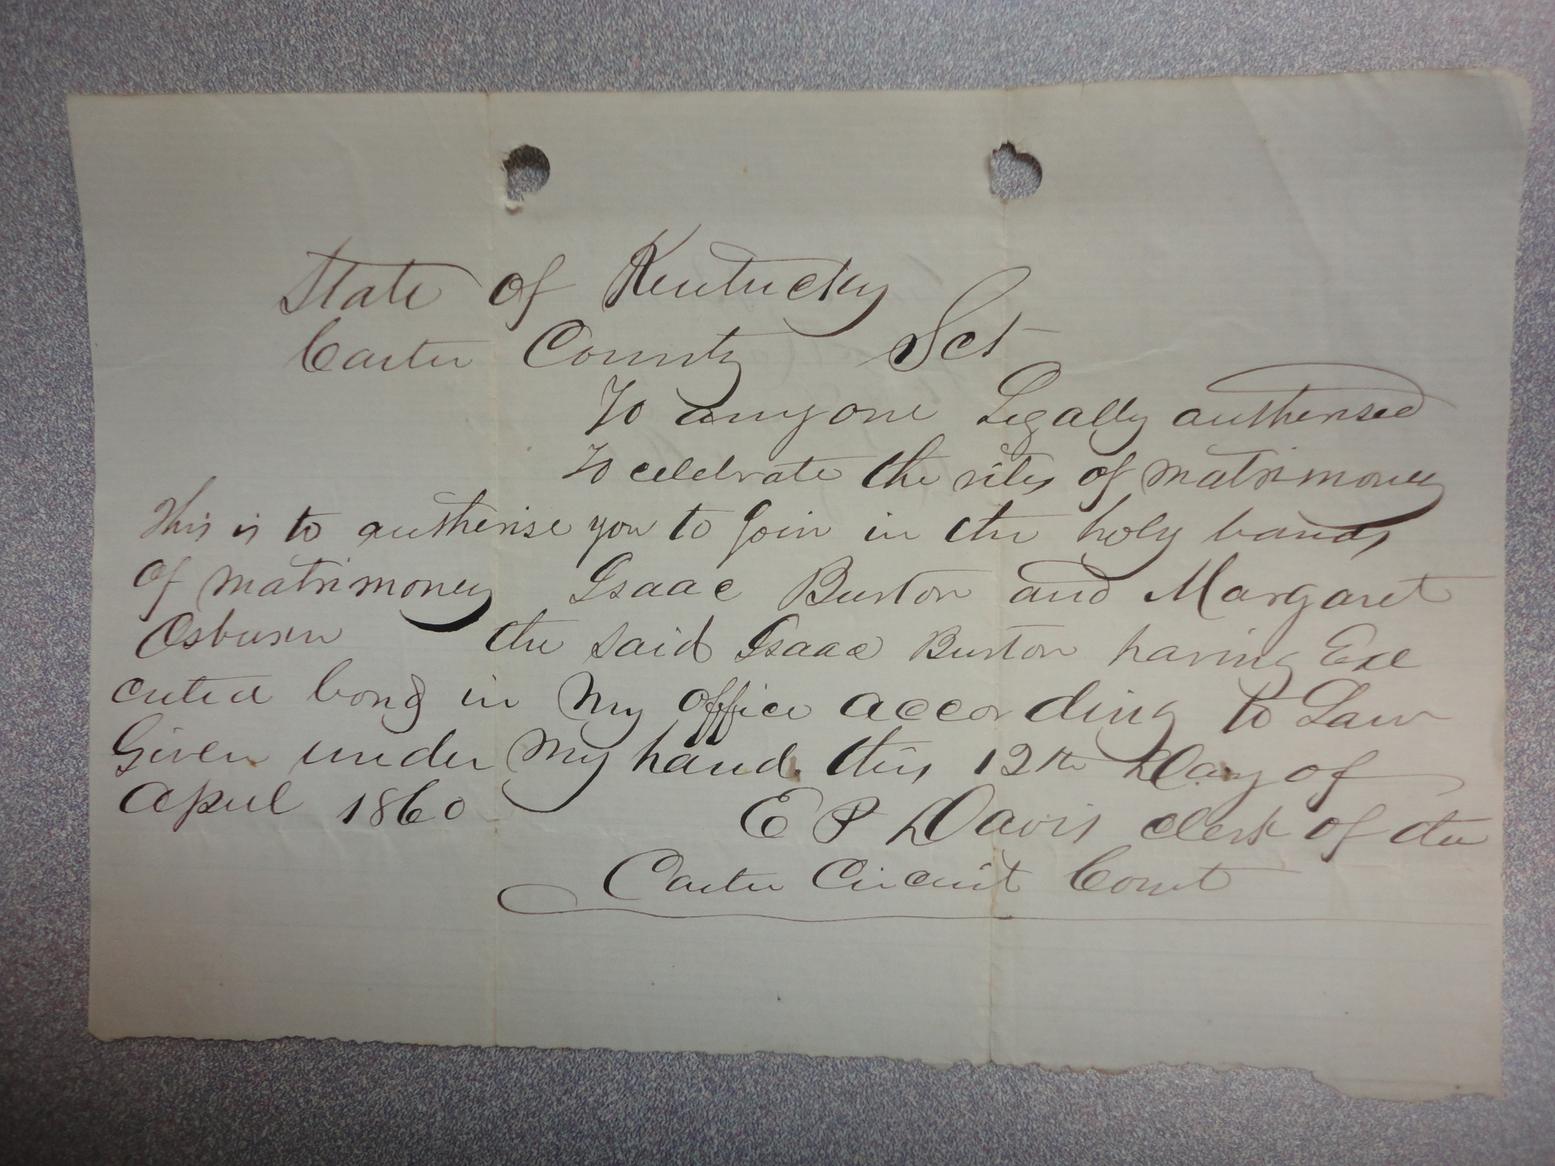 State of Kentucky
Carter County Sct
To anyone Legally autherised
To celebrate the rites of matrimoney
This is to autherise you to Join in the holy bands
Of matrimoney Isaac Burton and Margaret
Osburn the said Isaac Burton having Exe
cuted bond in My office according to Law
Given under My hand this 12th Day of
April 1860 E P Davis clerk of the
Carter Circuit Court